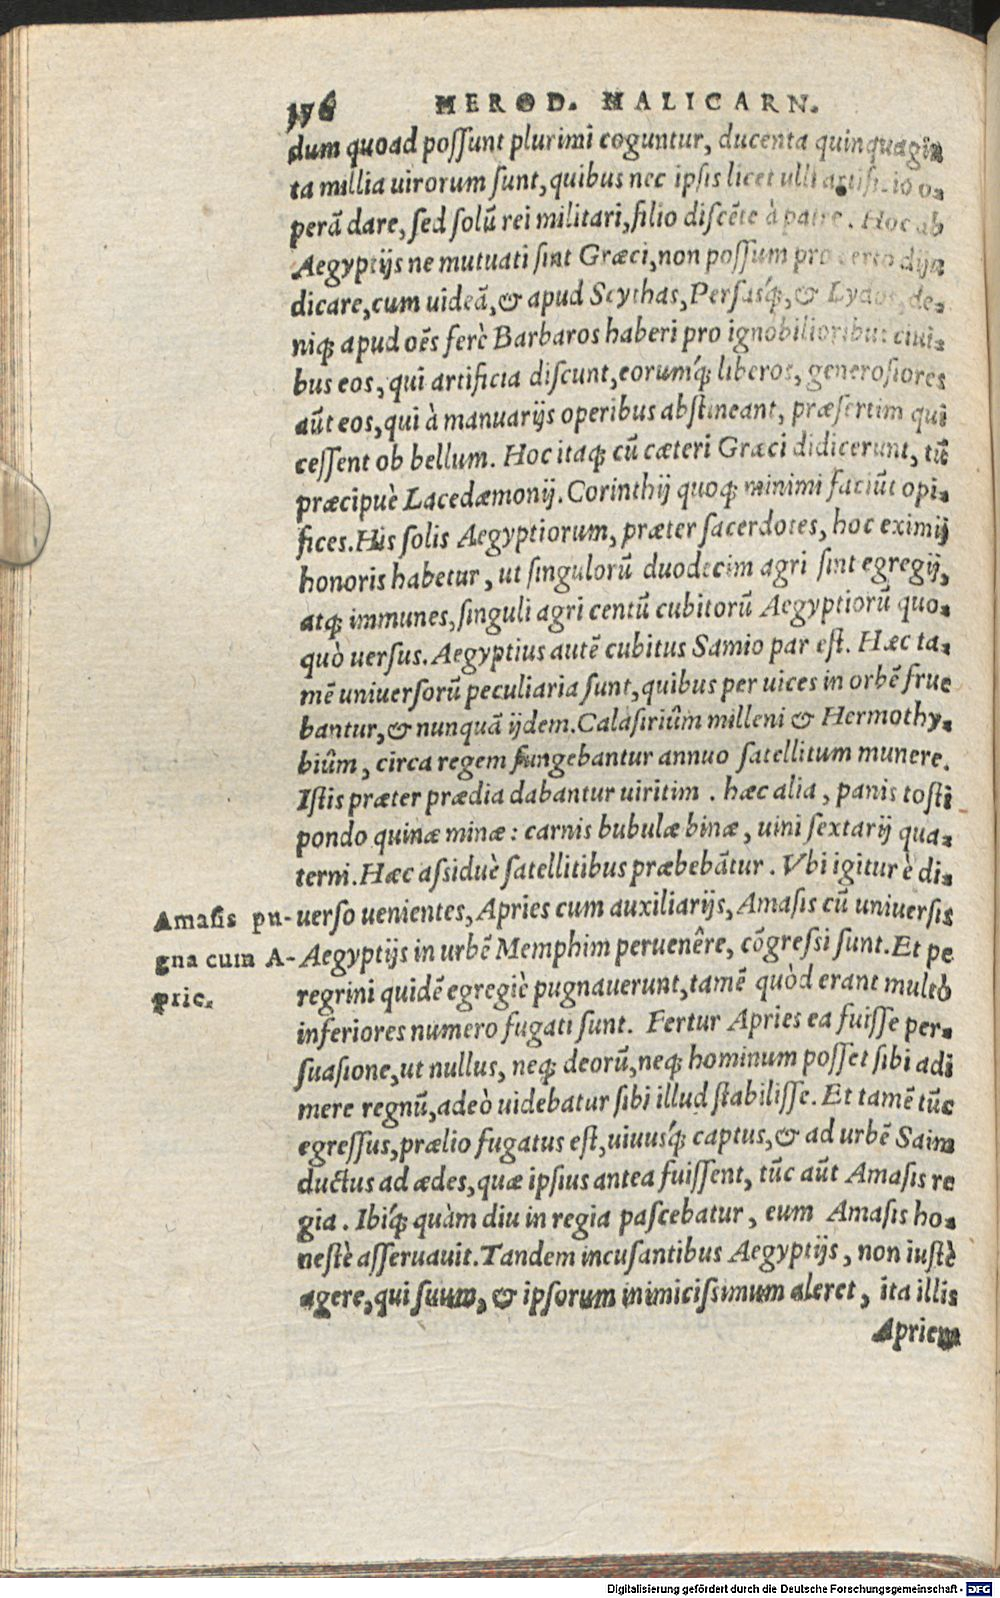 176 HEROD. HALICARN.
dum quoad poſſunt plurimi coguntur, ducenta quinquagin
ta millia uirorum ſunt, quibus nec ipſis licet ulli artificio o-
perã dare, ſed ſolũ rei militari, filio diſcẽte à patre. Hoc ab
Aegyptijs ne mutuati ſint Græci, non poſſum pro certo diju
dicare, cum uideã, & apud Scythas, Perſasq́;, & Lydos, de-
niq; apud oẽs ferè Barbaros haberi pro ignobilioribus ciui-
bus eos, qui artificia diſcunt, eorumq́; liberos, generoſiores
aũt eos, qui à manuarijs operibus abſtineant, præſertim qui
ceſſent ob bellum. Hoc itaq; cũ cæteri Græci didicerunt, tũ
præcipuè Lacedæmonij. Corinthij quoq; minimi faciũt opi-
fices. His ſolis Aegyptiorum, præter ſacerdotes, hoc eximij
honoris habetur, ut ſingulorũ duodecim agri ſint egregij,
atq; immunes, ſinguli agri centũ cubitorũ Aegyptiorũ quo-
quò uerſus. Aegyptius autẽ cubitus Samio par eſt. Hæc ta-
mẽ uniuerſorũ peculiaria ſunt, quibus per uices in orbẽ frue
bantur, & nunquã ijdem. Calaſiriûm milleni & Hermothy-
biûm, circa regem fungebantur annuo ſatellitum munere.
Iſtis præter prædia dabantur uiritim. hæc alia, panis toſti
pondo quinæ minæ: carnis bubulæ binæ, uini ſextarij qua-
terni. Hæc aſsiduè ſatellitibus præbebãtur. Vbi igitur è di-
Amaſis pu- uerſo uenientes, Apries cum auxiliarijs, Amaſis cũ uniuerſis
gna cum A- Aegyptijs in urbẽ Memphim peruenêre, cõgreſsi ſunt. Et pe
prie. regrini quidẽ egregiè pugnauerunt, tamẽ quòd erant multò
inferiores numero fugati ſunt. Fertur Apries ea fuiſſe per-
ſuaſione, ut nullus, neq; deorũ, neq; hominum poſſet ſibi adi
mere regnũ, adeò uidebatur ſibi illud ſtabiliſſe. Et tamẽ tũc
egreſſus, prælio fugatus eſt, uiuusq́; captus, & ad urbẽ Saim
ductus ad ædes, quæ ipſius antea fuiſſent, tũc aũt Amaſis re
gia. Ibiq́; quàm diu in regia paſcebatur, eum Amaſis ho-
neſtè aſſeruauit. Tandem incuſantibus Aegyptijs, non iuſtè
agere, qui ſuum, & ipſorum inimiciſsimum aleret, ita illis
Apriem
Digitalisierung gefördert durch die Deutsche Forschungsgemeinschaft - DFG